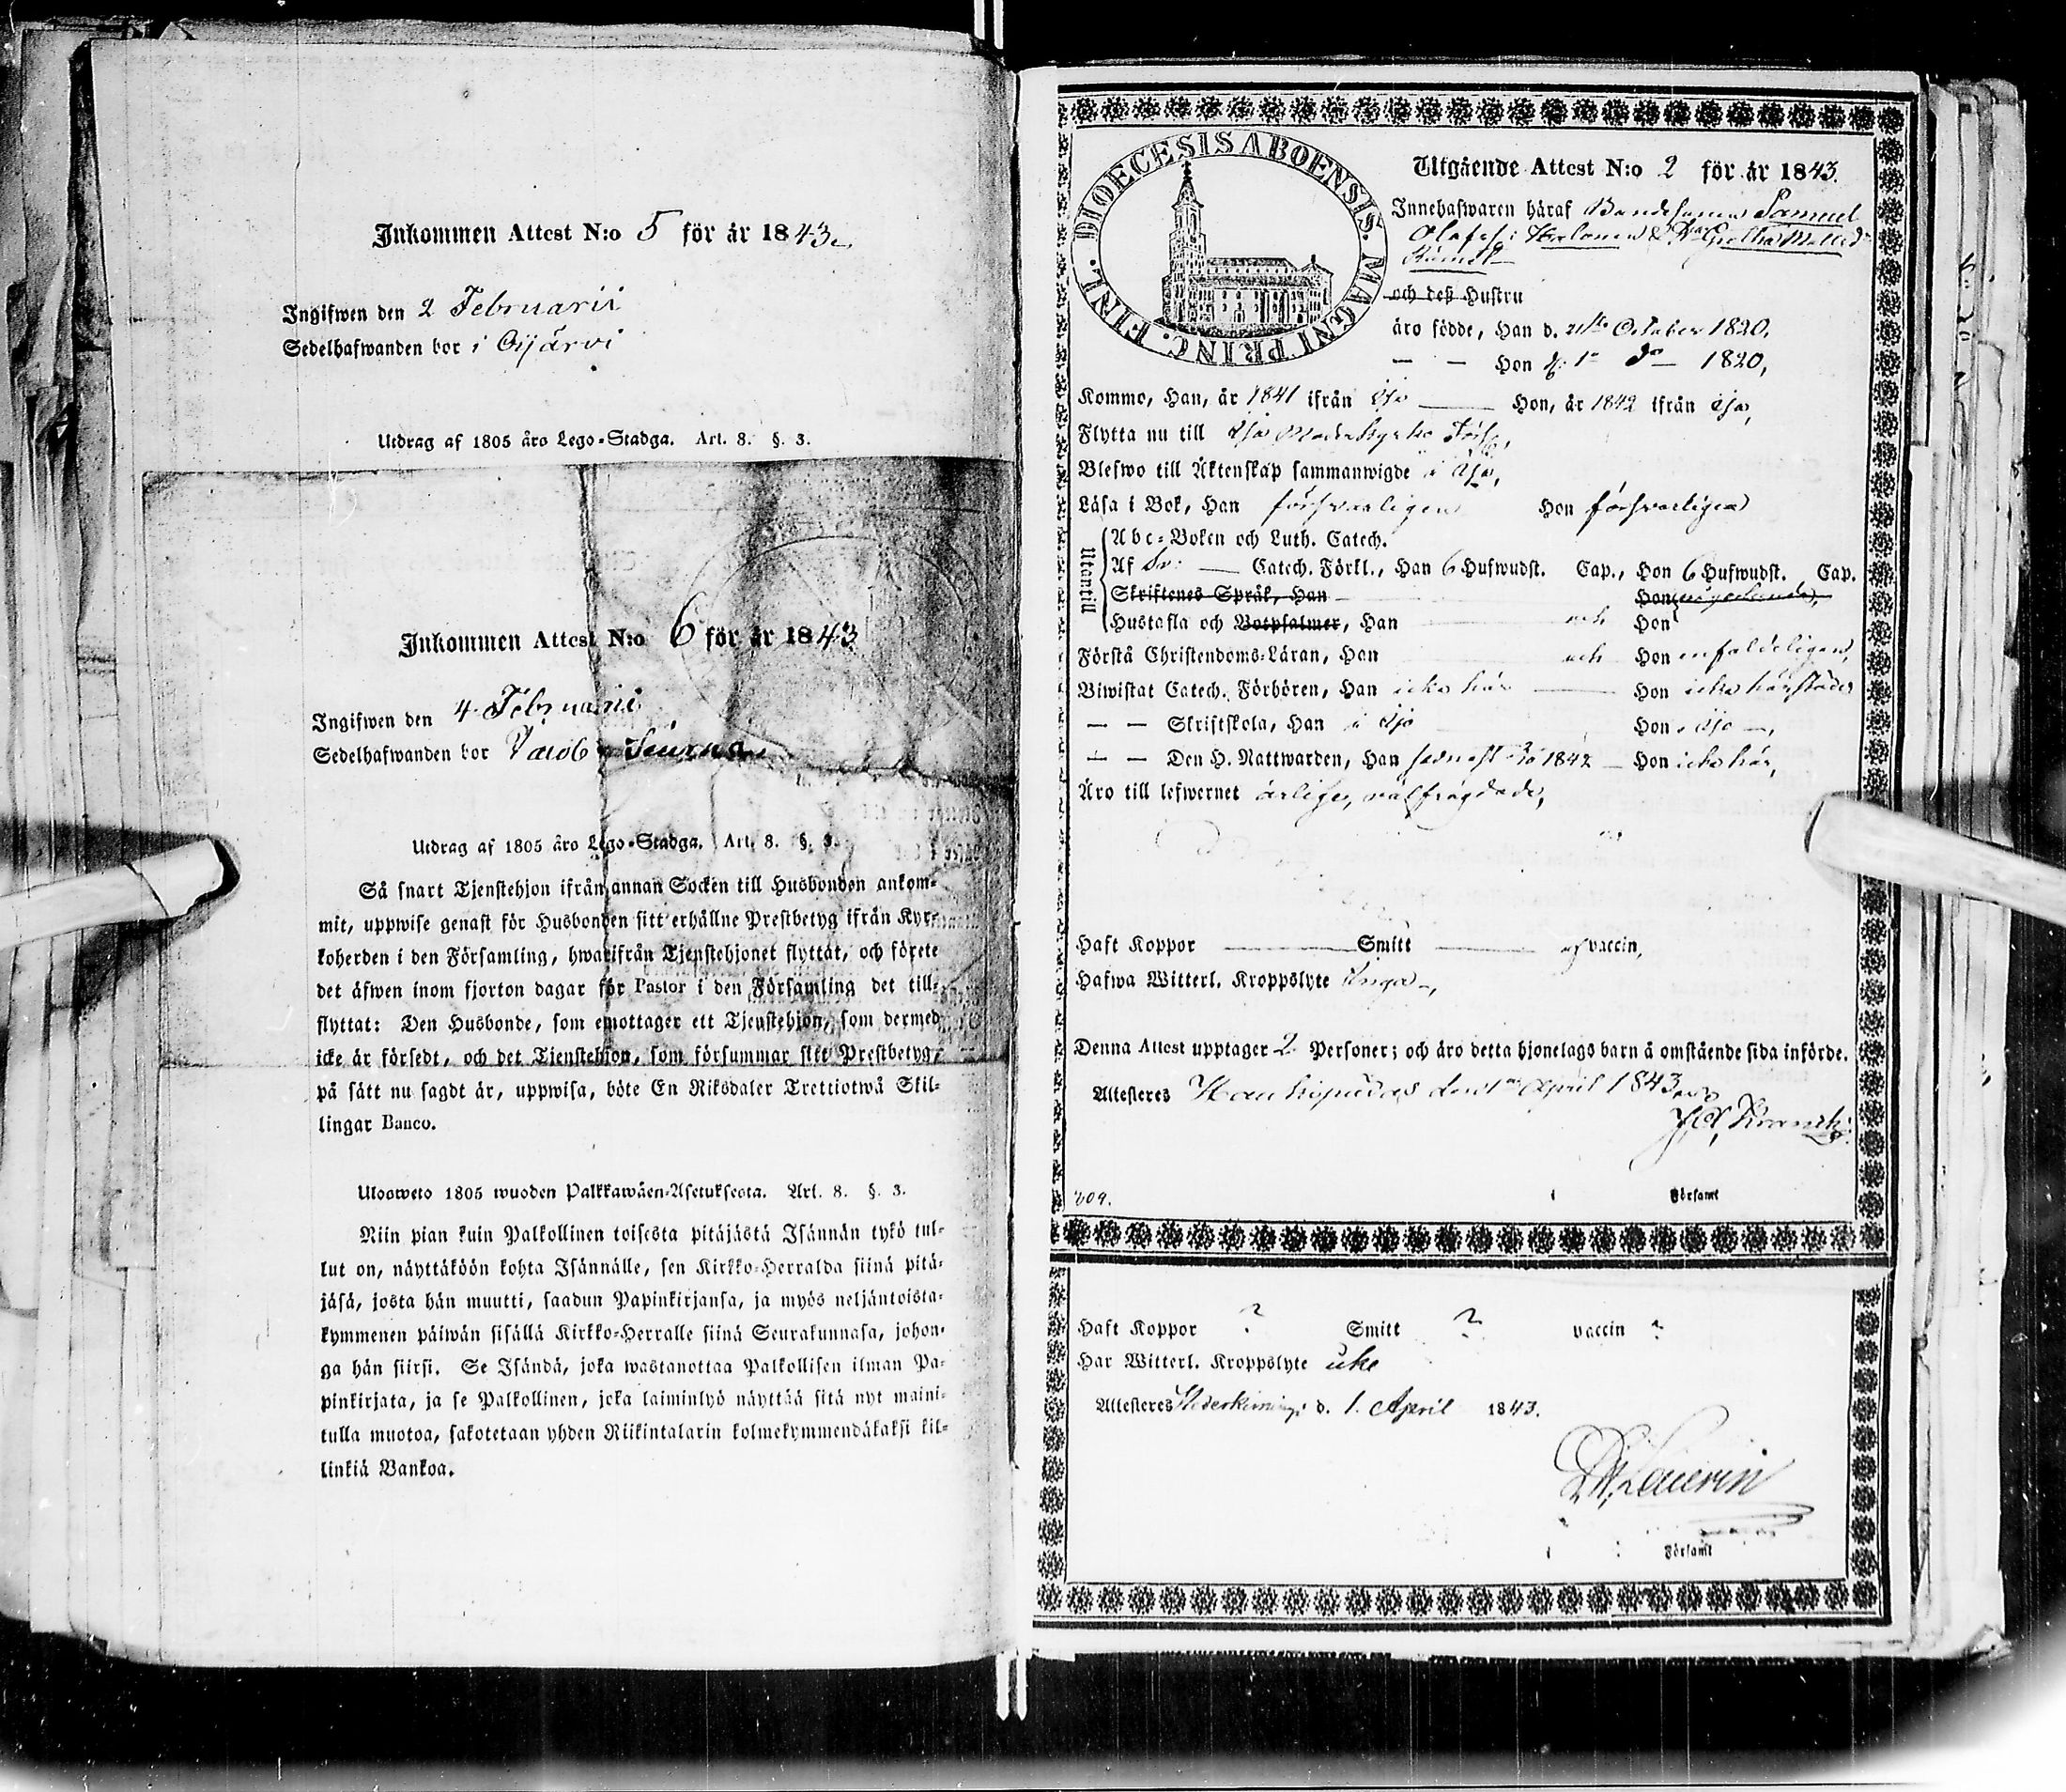 Inkommen Attest N:o 5 för år 1843.
Ingifwen den 2 Februarii
Sedelhafwanden bor i Oijärvi
Utdrag af 1805 års Lego-Stadga. Art. 8. §. 3.
Inkommen Attest N:o 6 för år 1843
Ingifwen den 4 Februarii
Sedelhafwanden bor Jacob
Utdrag af 1805 års Lego-Stadga. Art. 8. §. 3.
Så snart Tjenstehjon ifrån annan Socken till Husbonden ankom-
mit, uppwise genast för Husbonden sitt erhållne Prestbetyg ifrån Kyr-
koherden i den Församling, hwarifrån Tjenstehjonet flyttat, och förete
det äfwen inom fjorton dagar för Pastor i den Församling det till-
flyttat: Den Husbonde, som emottager ett Tjenstehjon, som dermed
icke är försedt, och det Tjenstehjon, som försummar sitt Prestbetyg,
på sätt nu sagdt är, uppwisa, böte En Riksdaler Trettiotwå Skil-
lingar Banco.
Ulosweto 1805 wuoden Palkkawäen-Asetuksesta. Art. 8. §. 3.
Niin pian kuin Palkollinen toisesta pitäjästä Isännän tykö tul-
lut on, näyttäköön kohta Isännälle, sen Kirkko-Herralda siinä pitä-
jäsä, josta hän muutti, saadun Papinkirjansa, ja myös neljäntoista-
kymmenen päiwän sisällä Kirkko-Herralle siinä Seurakunnasa, johon-
ga hän siirsi. Se Isändä, joka wastanottaa Palkollisen ilman Pa-
pinkirjata, ja se Palkollinen, joka laiminlyö näyttää sitä nyt maini-
tulla muotoa, sakotetaan yhden Riikintalarin kolmekymmendäkaksi kil-
linkiä Bankoa.
DIOECESIS ABOENSIS. MAGNI PRINC. FINL.
Utgående Attest N:o 2 för år 1843.
Innehafwaren häraf Bondesonen Samuel
och deß Hustru
äro födde, Han d. October 1820,
— — Hon 1820,
Kommo, Han, år 1841 ifrån Ijo Hon, år 1842 ifrån Ijo,
Flytta nu till Ijo Moderkyrko
Blefwo till Äktenskap sammanwigde i Ijo,
Läsa i Bok, Han försvarligen Hon försvarligen
Utantill
Abc-Boken och Luth. Catech.
Af Sv: Catech. Förkl., Han 6 Hufwudst. Cap., Hon 6 Hufwudst. Cap.
Skriftenes Språk, Han Hon
Hustafla och Botpsalmer, Han och Hon
Förstå Christendoms-Läran, Han och Hon enfaldeligen,
Biwistat Catech. Förhören, Han icke här Hon icke härstädes
— — Skriftskola, Han i Ijo Hon i Ijo —,
— — Den H. Nattwarden, Han sednast 1842 Hon icke här,
Äro till lefwernet ärlige, välfrägdade,
Haft Koppor Smitt af vaccin,
Hafwa Witterl. Kroppslyte Inga,
Denna Attest upptager 2 Personer; och äro detta hjonelags barn å omstående sida införde.
Attesteres Haukipudas den 1 April 1843
Församl
Haft Koppor ? Smitt ? vaccin ?
Har Witterl. Kroppslyte icke
Attesteres d. 1. April 1843.
i Församl